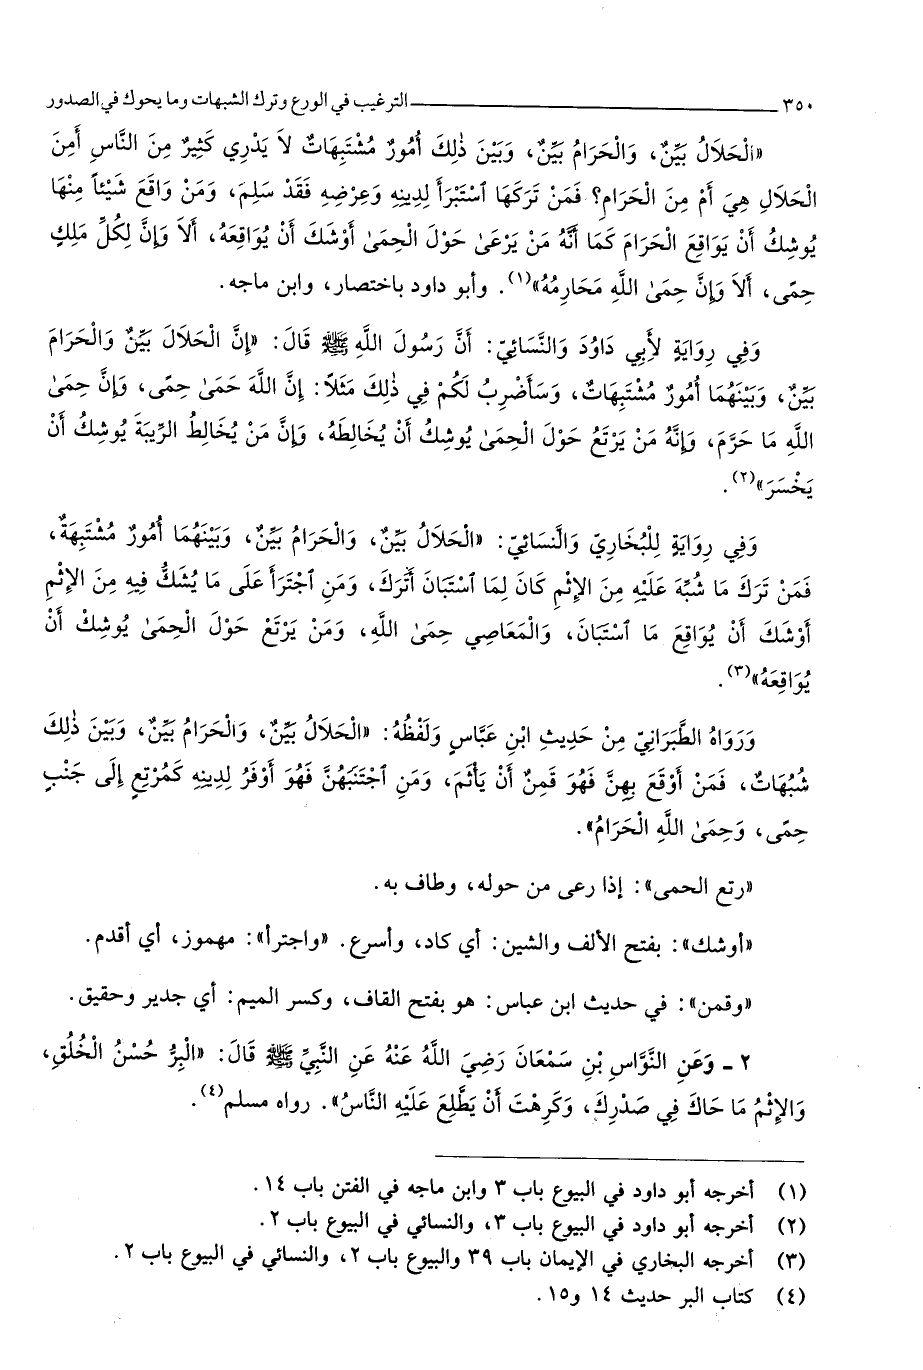 ٣٥٠ ــــــــــــ الترغيب في الورع وترك الشبهات وما يحوك في الصدور
«الْحَلَالُ بَيِّنٌ، وَالْحَرَامُ بَيِّنٌ، وَبَيْنَ ذٰلِكَ أُمُورٌ مُشْتَبِهَاتٌ لاَ يَدْرِي كَثِيرٌ مِنَ النَّاسِ أَمِنَ
الْحَلَالِ هِيَ أَمْ مِنَ الْحَرَامِ؟ فَمَنْ تَرَكَهَا ٱسْتَبْرَأَ لِدِينِهِ وَعِرْضِهِ فَقَدْ سَلِمَ، وَمَنْ وَاقَعَ شَيْئاً مِنْهَا
يُوشِكُ أَنْ يَوَاقِعَ الْحَرَامَ كَمَا أَنَّهُ مَنْ يَرْعَىٰ حَوْلَ الْحِمَىٰ أَوْشَكَ أَنْ يُوَاقِعَهُ، أَلاَ وَإِنَّ لِكُلِّ مَلِكٍ
حِمًى، أَلاَ وَإِنَّ حِمَىٰ اللَّهِ مَحَارِمُهُ»(١). وأبو داود باختصار، وابن ماجه.
وَفِي رِوَايَةٍ لأَبِي دَاوُدَ وَالنَّسَائِيّ: أَنَّ رَسُولَ اللَّهِ ﷺ قَالَ: «إِنَّ الْحَلَالَ بَيِّنٌ وَالْحَرَامَ
بَيِّنٌ، وَبَيْنَهُمَا أُمُورٌ مُشْتَبِهَاتٌ، وَسَأَضْرِبُ لَكُمْ فِي ذٰلِكَ مَثَلاً: إِنَّ اللَّهَ حَمَىٰ حِمًى، وَإِنَّ حِمَىٰ
اللَّهِ مَا حَرَّمَ، وَإِنَّهُ مَنْ يَرْتَعُ حَوْلَ الْحِمَىٰ يُوشِكُ أَنْ يُخَالِطَهُ، وَإِنَّ مَنْ يُخَالِطُ الرِّيبَةَ يُوشِكُ أَنْ
يَخْسَرَ»(٢).
وَفِي رِوَايَةٍ لِلْبُخَارِيّ وَالنَّسَائِيّ: «الْحَلَالُ بَيِّنٌ، وَالْحَرَامُ بَيِّنٌ، وَبَيْنَهُمَا أُمُورٌ مُشْتَبِهَةٌ،
فَمَنْ تَرَكَ مَا شُبِّهَ عَلَيْهِ مِنَ الإِثْمِ كَانَ لِمَا ٱسْتَبَانَ أَتْرَكَ، وَمَنِ ٱجْتَرَأَ عَلَى مَا يُشَكُّ فِيهِ مِنَ الإِثْمِ
أَوْشَكَ أَنْ يُوَاقِعَ مَا ٱسْتَبَانَ، وَالْمَعَاصِي حِمَىٰ اللَّهِ، وَمَنْ يَرْتَعْ حَوْلَ الْحِمَىٰ يُوشِكْ أَنْ
يُوَاقِعَهُ»(٣).
وَرَوَاهُ الطَّبَرَانِيّ مِنْ حَدِيثِ ابْنِ عَبَّاسٍ وَلَفْظُهُ: «الْحَلَالُ بَيِّنٌ، وَالْحَرَامُ بَيِّنٌ، وَبَيْنَ ذٰلِكَ
شُبُهَاتٌ، فَمَنْ أَوْقَعَ بِهِنَّ فَهُوَ قَمِنٌ أَنْ يَأْثَمَ، وَمَنِ ٱجْتَنَبَهُنَّ فَهُوَ أَوْفَرُ لِدِينِهِ كَمُرْتِعٍ إِلَى جَنْبِ
حِمًى، وَحِمَىٰ اللَّهِ الْحَرَامُ».
«رتع الحمى»: إذا رعى من حوله، وطاف به.
«أوشك»: بفتح الألف والشين: أي كاد، وأسرع. «واجترأ»: مهموز، أي أقدم.
«وقمن»: في حديث ابن عباس: هو بفتح القاف، وكسر الميم: أي جدير وحقيق.
٢ ـ وَعَنِ النَّوَّاسِ بْنِ سَمْعَانَ رَضِيَ اللَّهُ عَنْهُ عَنِ النَّبِيِّ ﷺ قَالَ: «الْبِرُّ حُسْنُ الْخُلُقِ،
وَالإِثْمُ مَا حَاكَ فِي صَدْرِكَ، وَكَرِهْتَ أَنْ يَطَّلِعَ عَلَيْهِ النَّاسُ». رواه مسلم(٤).
(١) أخرجه أبو داود في البيوع باب ٣ وابن ماجه في الفتن باب ١٤.
(٢) أخرجه أبو داود في البيوع باب ٣، والنسائي في البيوع باب ٢.
(٣) أخرجه البخاري في الإيمان باب ٣٩ والبيوع باب ٢، والنسائي في البيوع باب ٢.
(٤) كتاب البر حديث ١٤ و١٥.